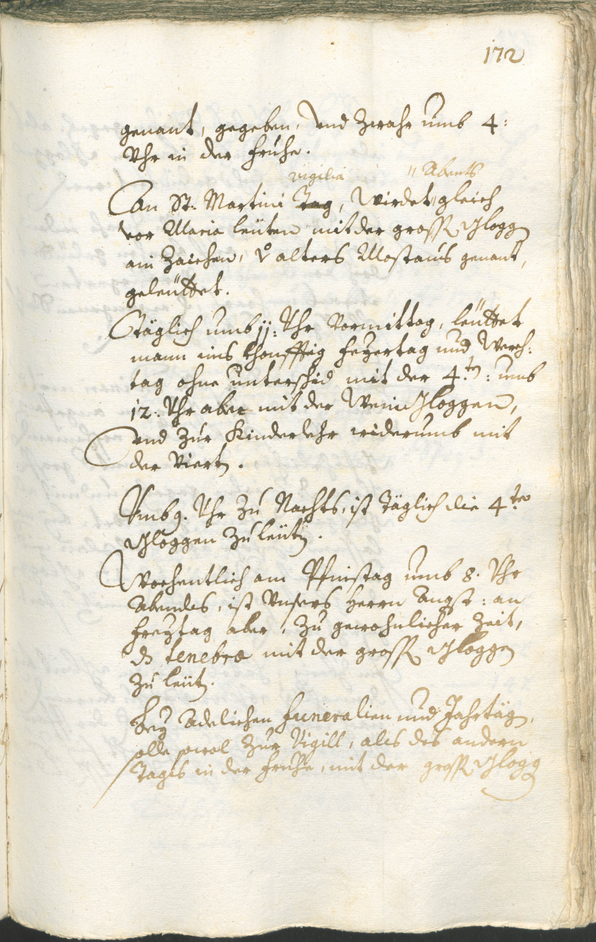 172
genant, gegeben, und Zwahr umb 4:
Uhr in der Fruhe.
vigilia " Abents
An St. Martini Tag, Wirdet gleich
vor Maria leüten mit der gross Glogg
ain Zaichen, v alters Mostaus genant,
geleüttet.
Täglich umb 11: Uhr Vormittag, leüttet
mann ins Feyertag und Werch:
tag ohne unterschid mit der 4.ten: umb
12: Uhr aber mit der Wein Gloggen,
und Zur Kinderlehr widerumb mit
der Viert.
Umb 9. Uhr Zu Nachts, ist Täglich die 4te
Gloggen Zuleüt.
Wochentlich am Pfinstag umb 8. Uhr
Abendts, ist Unsers Herrn Angst: am
Freytag aber, Zu gewohnlicher Zeit,
ds tenebrae mit der gross Gloggen
Zu leüt.
Bey Adelichen funeralien und Jahrtäg,
alss wol Zur Vigill, als des andern
Tags in der Fruhe, mit der gross Glogg